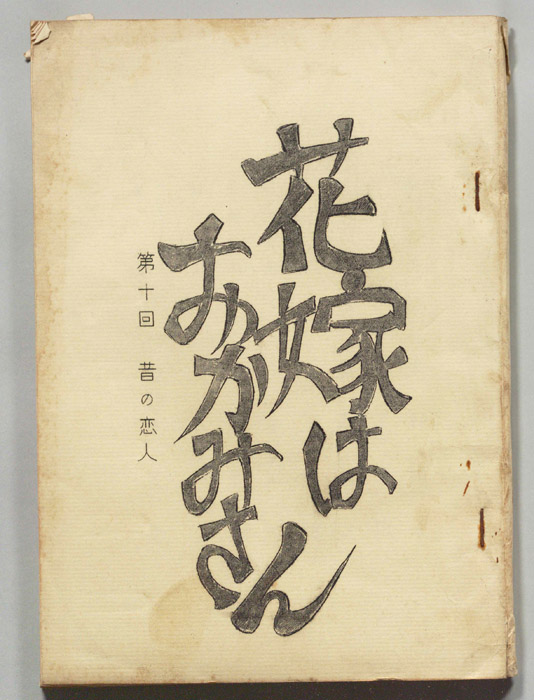 花嫁は
おかみさん
第十回 昔の恋人